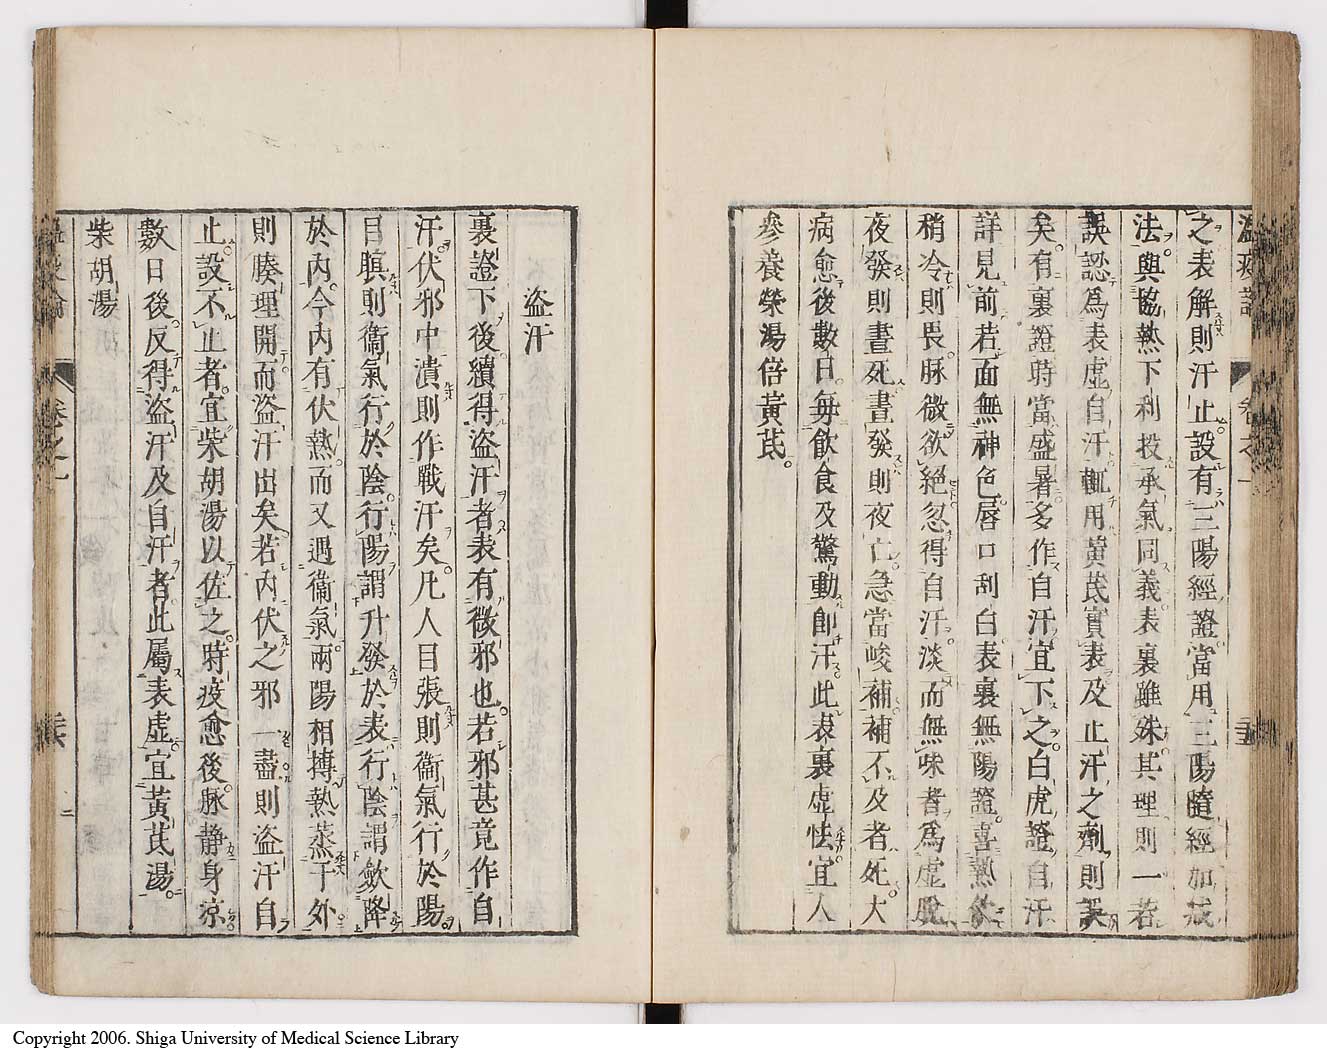 之表解則汗止設有三陽經證當用三陽隨經加減
法與協熱下利投承氣同義表裏雖殊其理則一若
誤認爲表虛自汗輒用黄茋實表及止汗之劑則誤
矣有裏證時當盛暑多作自汗宜下之白虎證自汗
詳見前若面無神色唇口刮白表裏無陽證喜熱飲
稍冷則畏脉微欲絕忽得自汗淡而無味者爲虛脫
夜發則晝死晝發則夜亡急當峻補補不及者死大
病愈後數日毎飲食及驚動即汗此表裏虛怯宜人
參養榮湯倍黄茋。
盜汗
裏證下後續得盜汗者表有微邪也若邪甚竟作自
汗伏邪中潰則作戰汗矣凡人目張則衞氣行於陽
目瞑則衞氣行於陰行陽謂升發於表行陰謂歛降
於內今內有伏熱而又遇衞氣兩陽相搏熱蒸于外
則腠理開而盜汗出矣若內伏之邪一盡則盜汗自
止設不止者宜柴胡湯以佐之時疫愈後脉静身凉
數日後反得盜汗及自汗者此屬表虛宜黄茋湯
柴胡湯
卷之一
Copyright 2006. Shiga University of Medical Science Library